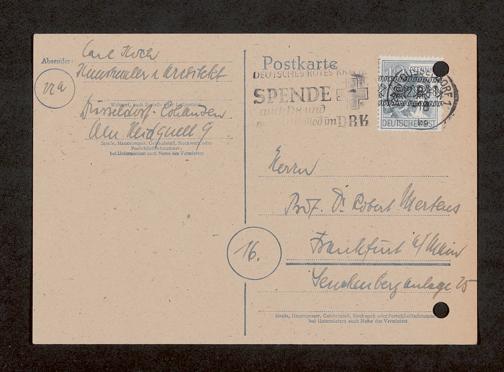 Carl Koch
Absender:
Kunstmaler u. Architekt
22a
Düsseldorf-
Wohnort, auch Zustell- oder Leitpostamt
Am 9
Straße, Hausnummer, Gebäudeteil, Stockwerk oder
Postschließfachnummer;
bei Untermietern auch Name des Vermieters
Postkarte
DEUTSCHES ROTES
SPENDE
auch Du und
im DRK
DÜSSELDORF
DEUTSCHE POST
Herrn
Prof. Dr. Robert Mertens
16.
Frankfurt a/Main
Senckenberganlage 25
Straße, Hausnummer, Gebäudeteil, Stockwerk oder Postschließfachnummer;
bei Untermietern auch Name des Vermieters